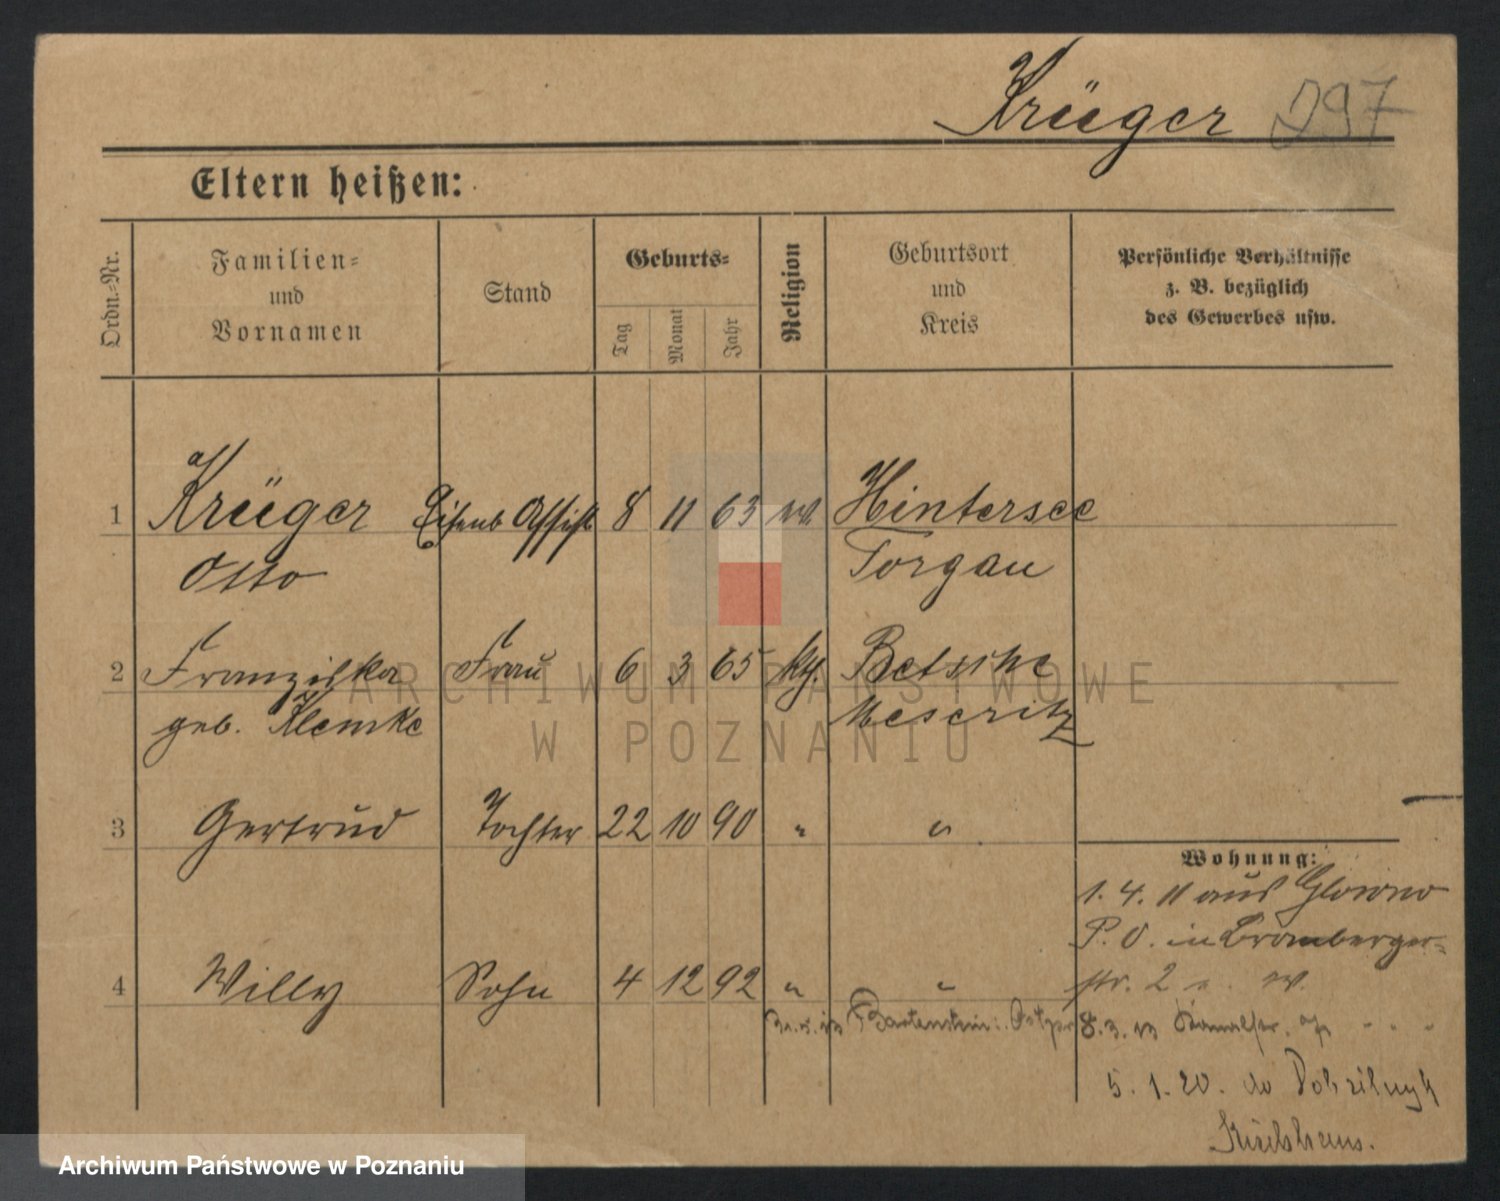 Krüger 297
Eltern heißen:
Ordn.=Nr.
Familien=
und
Vornamen
Stand
Geburts=
Tag
Monat
Jahr
Religion
Geburtsort
und
Kreis
Persönliche Verhältnisse
z. B. bezüglich
des Gewerbes usw.
1 Krüger Eisenb Assist 8 11 63 ev. Hintersee
Otto Torgau
2 Franziska Frau 6 3 65 kth. Betsche
geb. Klemke Meseritz
3 Gertrud Tochter 22 10 90 " "
Wohnung:
1. 4. 11 aus Glowno
P. O. in Bromberger=
4 Willy Sohn 4 12 92 " "
str. 2
Bartenstein Ostpr
8. 3. 13 Kanalstr.
5. 1. 20.
ARCHIWUM PAŃSTWOWE
W POZNANIU
Archiwum Państwowe w Poznaniu